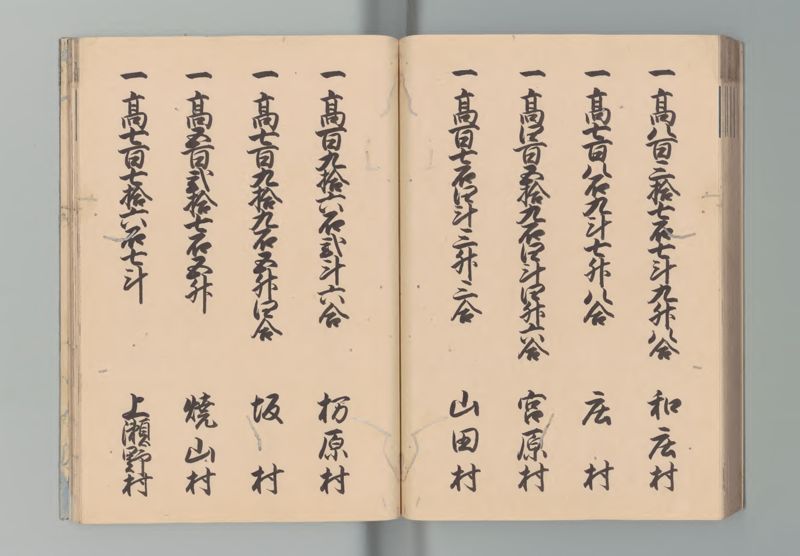 一高八百三拾七石七斗九升八合 和庄村
一高七百八石九斗七升八合 庄村
一高四百五拾九石四斗四升六合 宮原村
一高百七石四斗三升三合 山田村
一高百九拾六石弐斗六合 栃原村
一高七百九拾九石五升四合 坂村
一高五百弐拾七石五升 焼山村
一高七百七拾六石七斗 上瀬野村